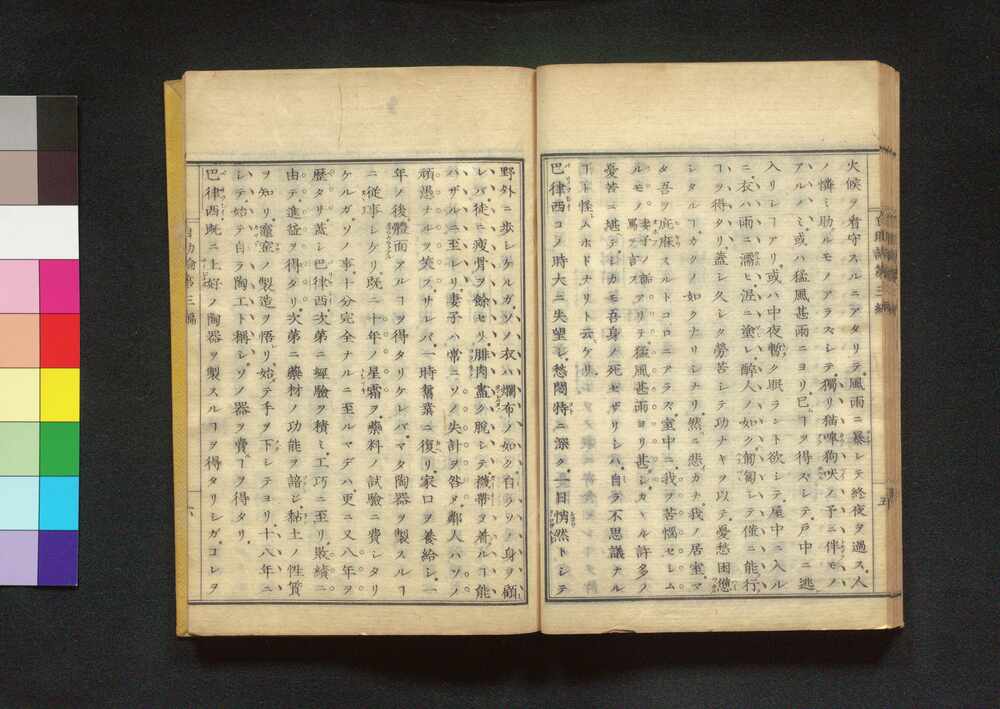 火候ヲ看守スルニアタリテ風雨ニ暴レテ終夜ヲ過ス人
ノ憐ミ助ルモノアラズシテ獨リ猫啼狗吠ノ予ニ伴モノ
アルノミ或ハ猛風甚雨ニヨリ已ヿヲ得ズシテ戸中ニ逃
入リシヿアリ或ハ中夜暫ク眠ラント欲シテ屋中ニ入ル
ニ衣ハ雨ニ濡ヒ涅ニ塗レ醉人ノ如ク匍匐シテ僅ニ能行
ヿヲ得タリ蓋シ久シク勞苦シテ功ナキヲ以テ憂愁困憊
シタルヿカクノ如クナリシナリ然ニ悲カナ我ノ居室マ
タ吾ヲ庇庥スルトコロニアラズ室中ニ我ヲ苦惱セシム
ルモノ
アリテ猛風甚雨ヨリ甚シカヽル許多ノ
憂苦ニ堪テシカモ吾身ノ死セザリシハ自ラ不思議ナル
ヿト怪ムホドナリト云ケリ
巴律西コノ時大ニ失望シ愁悶特ニ深ク一日悄然トシテ
野外ニ歩シケルガソノ衣ハ爛布ノ如ク自ラソノ身ヲ顧
レバ徒ニ瘦骨ヲ餘セリ腓肉盡ク脫シテ襪帶ヲ着ルヿ能
ハザルニ至レリ妻子ハ常ニソノ失計ヲ咎メ鄰人ハソノ
頑愚ナルヲ笑フサレバ一時舊業ニ復リ家口ヲ養給シ一
年ノ後體面アルヿヲ得タリケレバマタ陶器ヲ製スルヿ
ニ從事シケリ既ニ十年ノ星霜ヲ藥料ノ試驗ニ費シタリ
ケルガソノ事十分完全ナルニ至ルマデハ更ニ又八年ヲ
歷タリ蓋シ巴律西次第ニ經驗ヲ積ミ工巧ニ至リ敗績ニ
由テ進益ヲ得タリ次第ニ藥材ノ功能ヲ諳シ黏土ノ性質
ヲ知リ竈窯ノ製造ヲ悟リ始テ手ヲ下シテヨリ十八年ニ
シテ始テ自ラ陶工ト稱シソノ器ヲ費ヿヲ得タリ
巴律西既ニ上好ノ陶器ヲ製スルヿヲ得タリシガコレヲ
自助論第三編